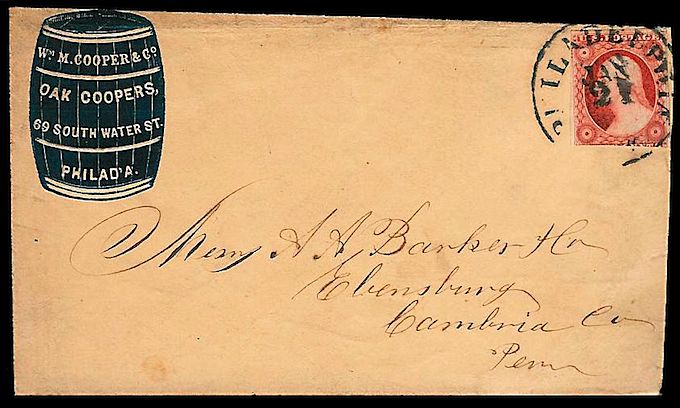 Wm M. COOPER & Co
OAK COOPERS,
69 SOUTH WATER ST.
PHILAD'A.
PHILADELPHIA
JAN
21
U.S. POSTAGE
Mess A A Barker & Co
Ebensburg
Cambria Co
Penn